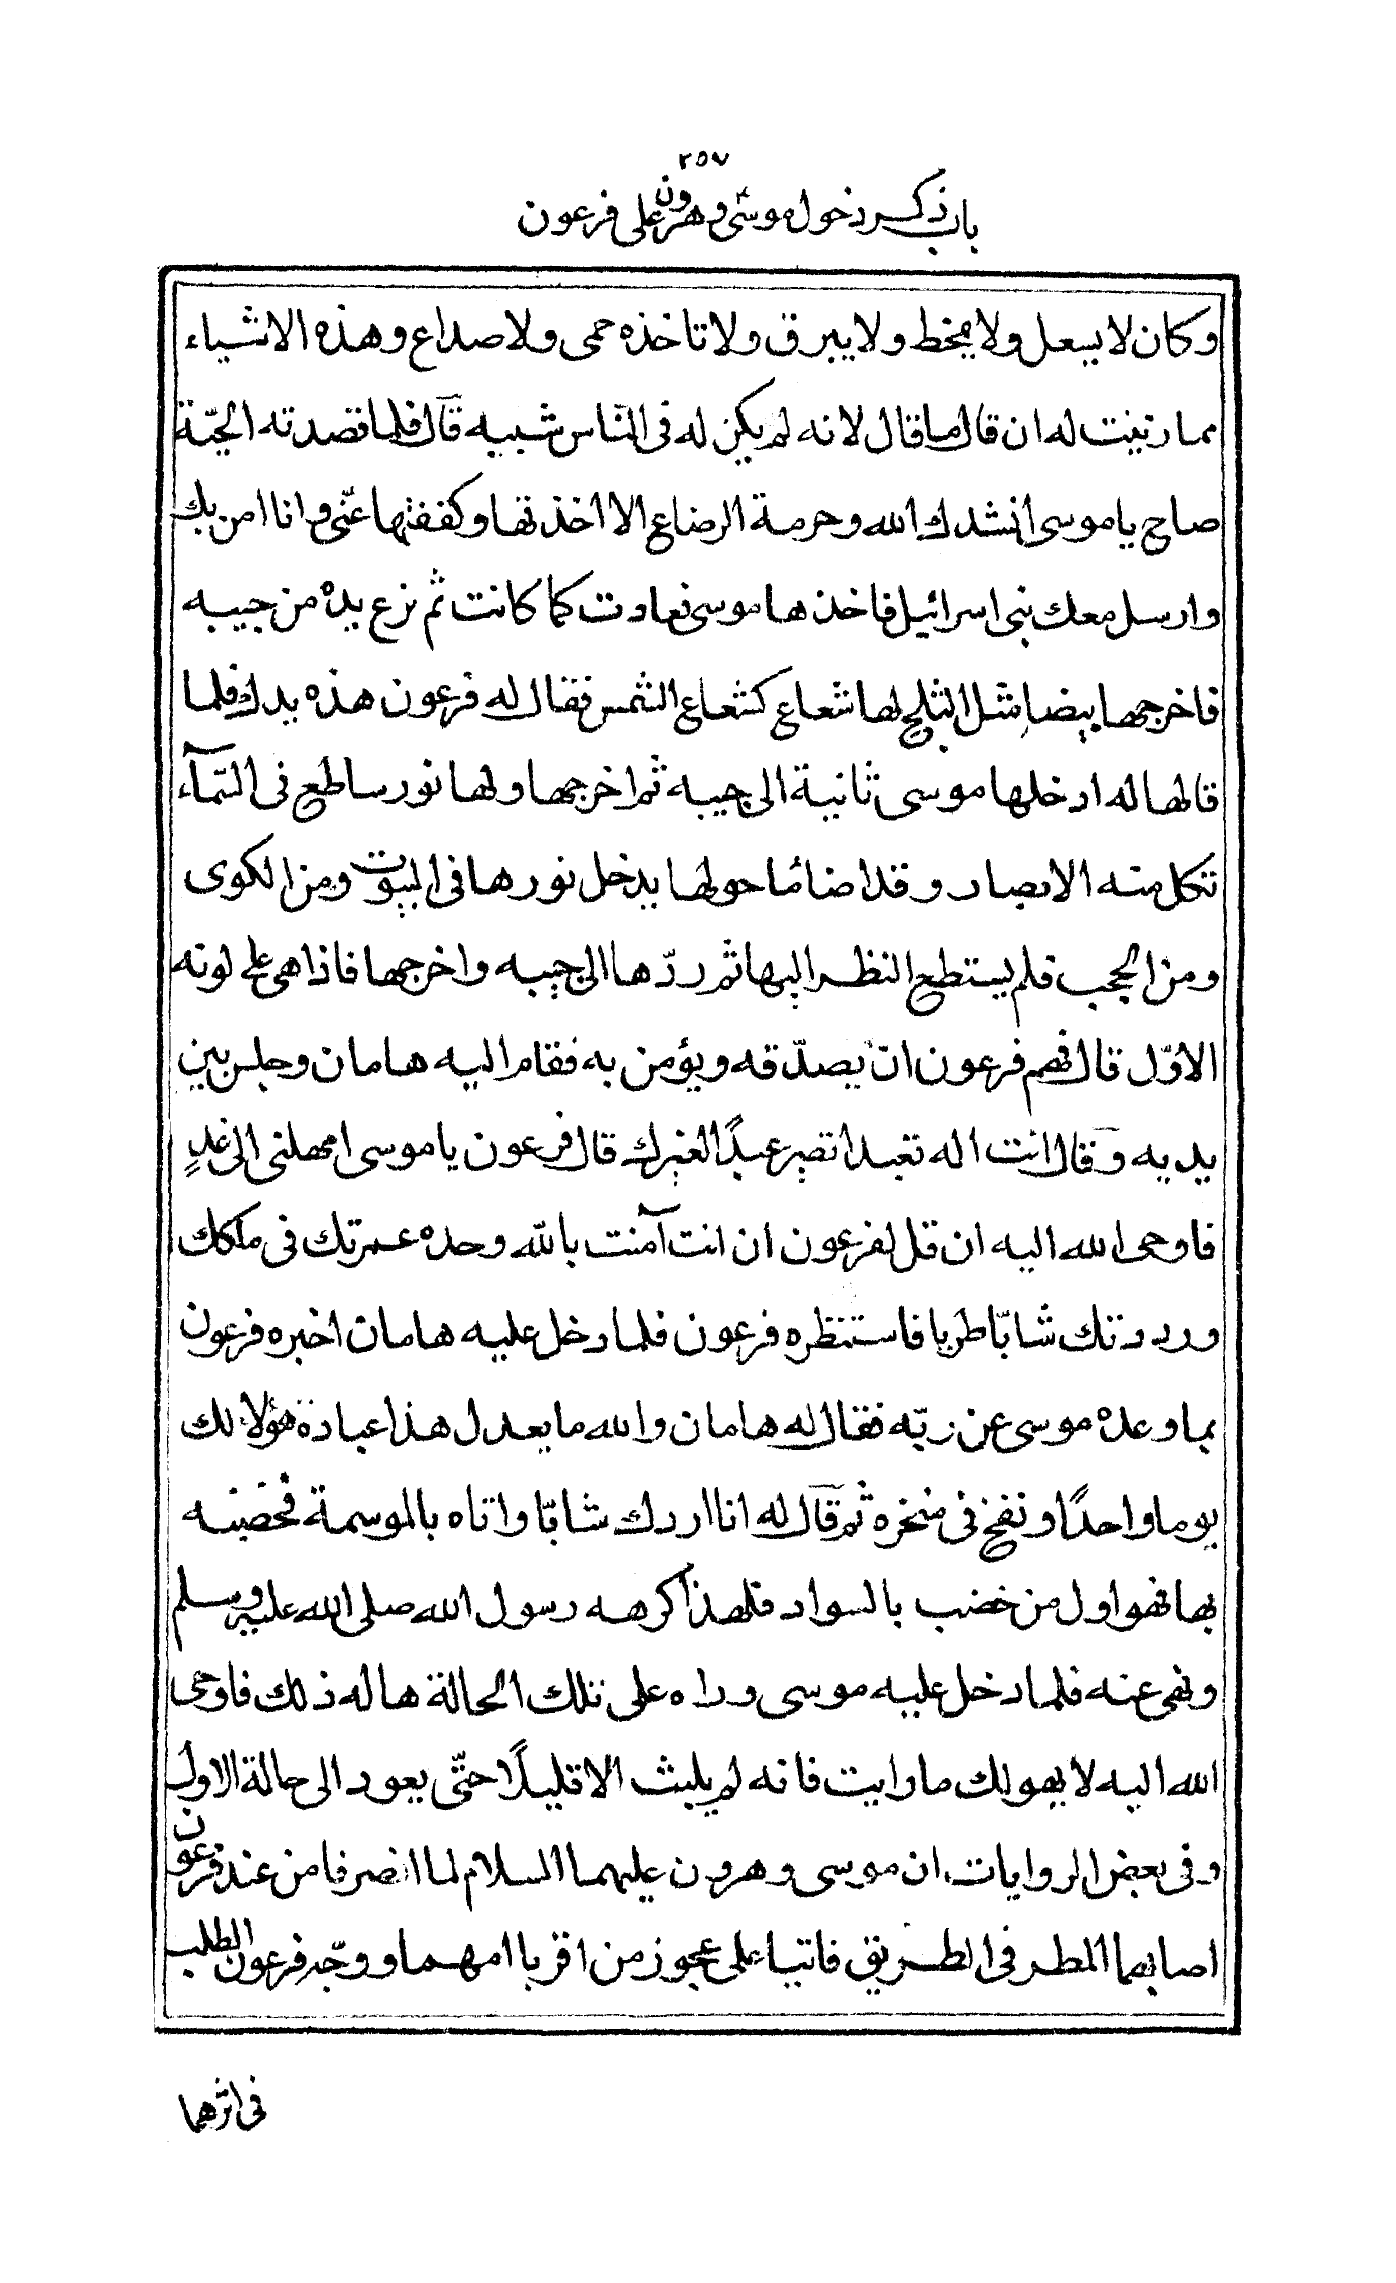 ٢٥٧
باب ذكر دخول موسى وهرون على فرعون
وكان لا يسعل ولا يمخط ولا يبرق ولا تاخذه حمى ولا صداع وهذه الاشياء
مما زينت له ان قال ما قال لانه لم يكن له فى الناس شبيه قال فلما قصدته الحيّة
صاح يا موسى انشدك الله وحرمة الرضاع الا اخذتها وكففتها عنّى وانا امن بك
وارسل معك بنى اسرائيل فاخذها موسى فعادت كما كانت ثم نزع يده من جيبه
فاخرجها بيضا مثل الثلج لها شعاع كشعاع الشمس فقال له فرعون هذه يدك فلما
قالها له ادخلها موسى ثانية الى جيبه ثم اخرجها ولها نور ساطع فى السّمآء
تكل منه الابصار وقد اضا ما حولها يدخل نورها فى البيوت ومن الكوى
ومن الحجب فلم يستطع النظر اليها ثم ردّها الى جيبه واخرجها فاذا هى على لونه
الاوّل قال فهم فرعون انّ يصدّقه ويؤمن به فقام اليه هامان وجلس بين
يديه وقال انت اله تعبد اتصير عبدًا لغيرك قال فرعون يا موسى امهلنى الى غدٍ
فاوحى الله اليه ان قل لفرعون ان انت آمنت بالله وحده عمرتك فى ملكك
ورددتك شابّا طريا فاستنظره فرعون فلما دخل عليه هامان اخبره فرعون
بما وعده موسى عن ربّه فقال له هامان والله ما يعدل هذا عبادة هؤلا لك
يوما واحدًا ونفخ فى منخره ثم قال له انا اردك شابّا واتاه بالموسمة فخضبه
بها فهو اول من خضب بالسواد فلهذا كرهه رسول الله صلى الله عليه وسلم
ونهى عنه فلما دخل عليه موسى وراه على تلك الحالة هاله ذلك فاوحى
الله اليه لا يهولك ما رايت فانه لم يلبث الا قليلًا حتّى يعود الى حالة الاول
وفى بعض الروايات ان موسى وهرون عليهما السلام لما انصرفا من عند فرعون
اصابهما المطر فى الطريق فاتيا على عجوز من اقربا امهما ووجّه فرعون الطلب
فى اثرهما